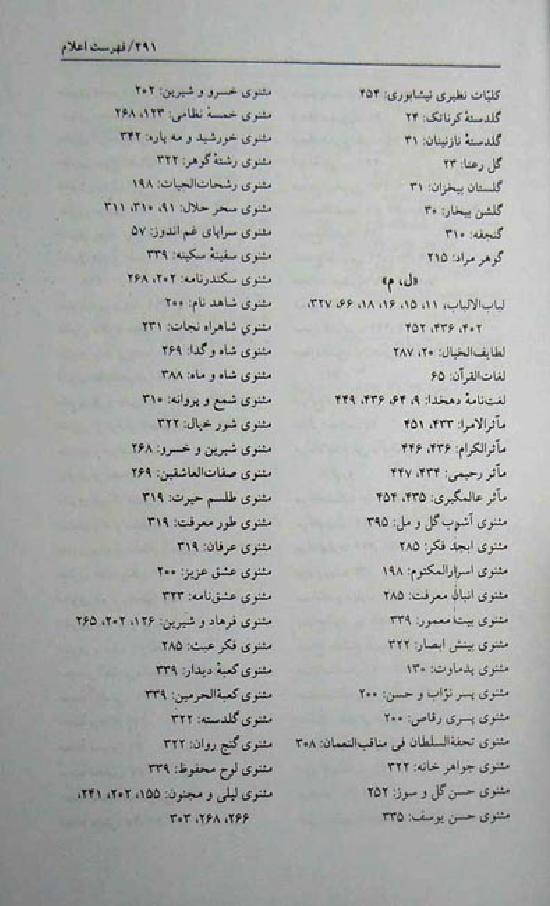 ۲۹۱/ فهرست اعلام
کلیّات نظیری نیشابوری: ۴۵۴
گلدستهٔ کرناتک: ۲۴
گلدستهٔ نازنینان: ۳۱
گل رعنا: ۲۳
گلستان بیخزان: ۳۱
گلشن بیخار: ۳۰
گنجفه: ۳۱۰
گوهر مراد: ۲۱۵
«ل، م»
لباب‌الالباب: ۱۱، ۱۵، ۱۶، ۱۸، ۶۶، ۳۲۷،
۴۰۲، ۴۳۶، ۴۵۲
لطایف‌الخیال: ۲۰، ۲۸۷
لغات‌القرآن: ۶۵
لغت‌نامهٔ دهخدا: ۹، ۶۴، ۴۳۶، ۴۴۹
مآثرالامرا: ۴۳۳، ۴۵۱
مآثرالکرام: ۴۳۶، ۴۴۶
مآثر رحیمی: ۴۳۴، ۴۴۷
مآثر عالمگیری: ۴۳۵، ۴۵۴
مثنوی آشوب گل و مل: ۳۹۵
مثنوی ابجد فکر: ۲۸۵
مثنوی اسرارالمکتوم: ۱۹۸
مثنوی انبان معرفت: ۲۸۵
مثنوی بیت معمور: ۳۳۹
مثنوی بینش ابصار: ۳۲۲
مثنوی پدماوت: ۱۳۰
مثنوی پسر تزّاب و حسن: ۲۰۰
مثنوی پسری رقاصی: ۲۰۰
مثنوی تحفةالسلطان فی مناقب‌النعمان: ۳۰۸
مثنوی جواهر خانه: ۳۲۲
مثنوی حسن گل و سوز: ۲۵۲
مثنوی حسن یوسف: ۳۳۵
مثنوی خسرو و شیرین: ۲۰۲
مثنوی خمسهٔ نظامی: ۱۲۳، ۲۶۸
مثنوی خورشید و مه پاره: ۳۴۲
مثنوی رشتهٔ گوهر: ۳۲۲
مثنوی رشحات‌الحیات: ۱۹۸
مثنوی سحر حلال: ۹۱، ۳۱۰، ۳۱۱
مثنوی سراپای غم اندوز: ۵۷
مثنوی سفینهٔ سکینه: ۳۳۹
مثنوی سکندرنامه: ۲۰۲، ۲۶۸
مثنوی شاهد نام: ۲۰۰
مثنوی شاهراه نجات: ۲۳۱
مثنوی شاه و گدا: ۲۶۹
مثنوی شاه و ماه: ۳۸۸
مثنوی شمع و پروانه: ۳۱۰
مثنوی شور خیال: ۳۲۲
مثنوی شیرین و خسرو: ۲۶۸
مثنوی صفات‌العاشقین: ۲۶۹
مثنوی طلسم حیرت: ۳۱۹
مثنوی طور معرفت: ۳۱۹
مثنوی عرفان: ۳۱۹
مثنوی عشق عزیز: ۲۰۰
مثنوی عشق‌نامه: ۳۲۳
مثنوی فرهاد و شیرین: ۱۲۶، ۲۰۲، ۲۶۵
مثنوی فکر عبث: ۲۸۵
مثنوی کعبهٔ دیدار: ۳۳۹
مثنوی کعبةالحرمین: ۳۳۹
مثنوی گلدسته: ۳۲۲
مثنوی گنج روان: ۳۲۲
مثنوی لوح محفوظ: ۳۳۹
مثنوی لیلی و مجنون: ۱۵۵، ۲۰۲، ۲۴۱،
۲۶۶، ۲۶۸، ۳۰۳